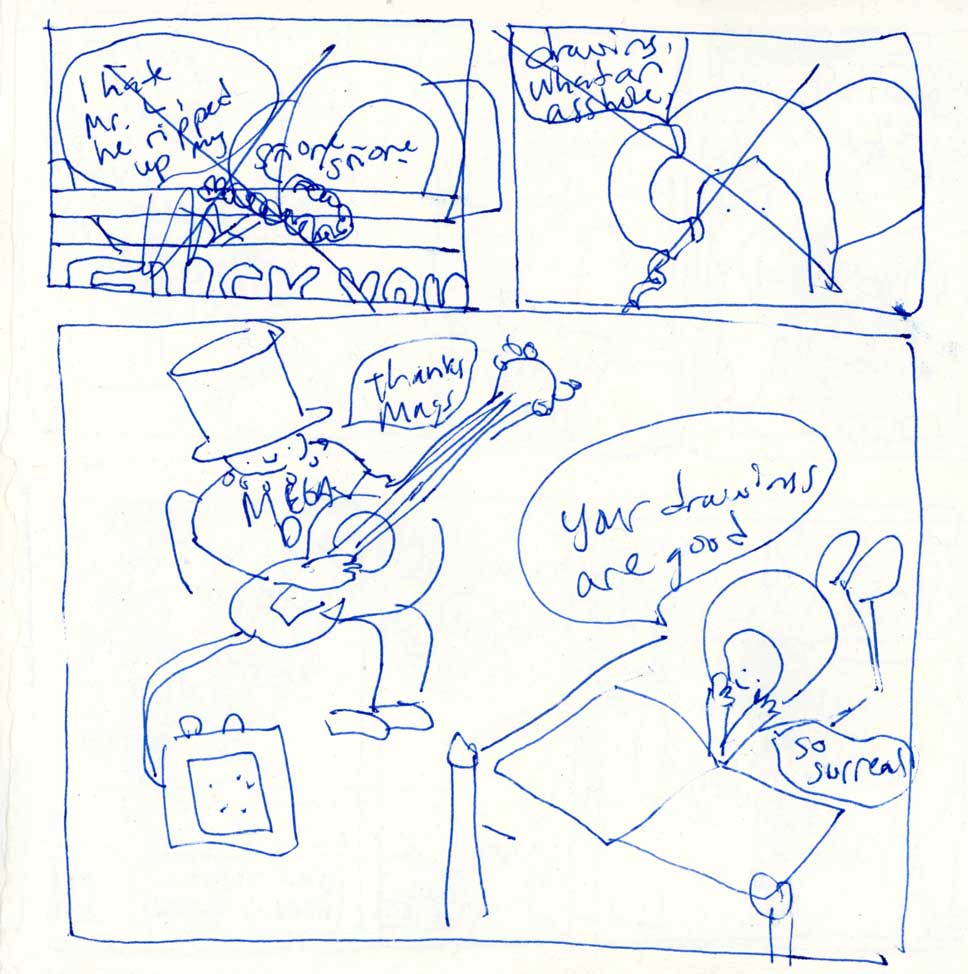 I hate
Mr. L,
he ripped
up my
smore smore
drawins,
what an
asshole,
thanks
Mags
MEGA
D
your drawings
are good
so
surreal